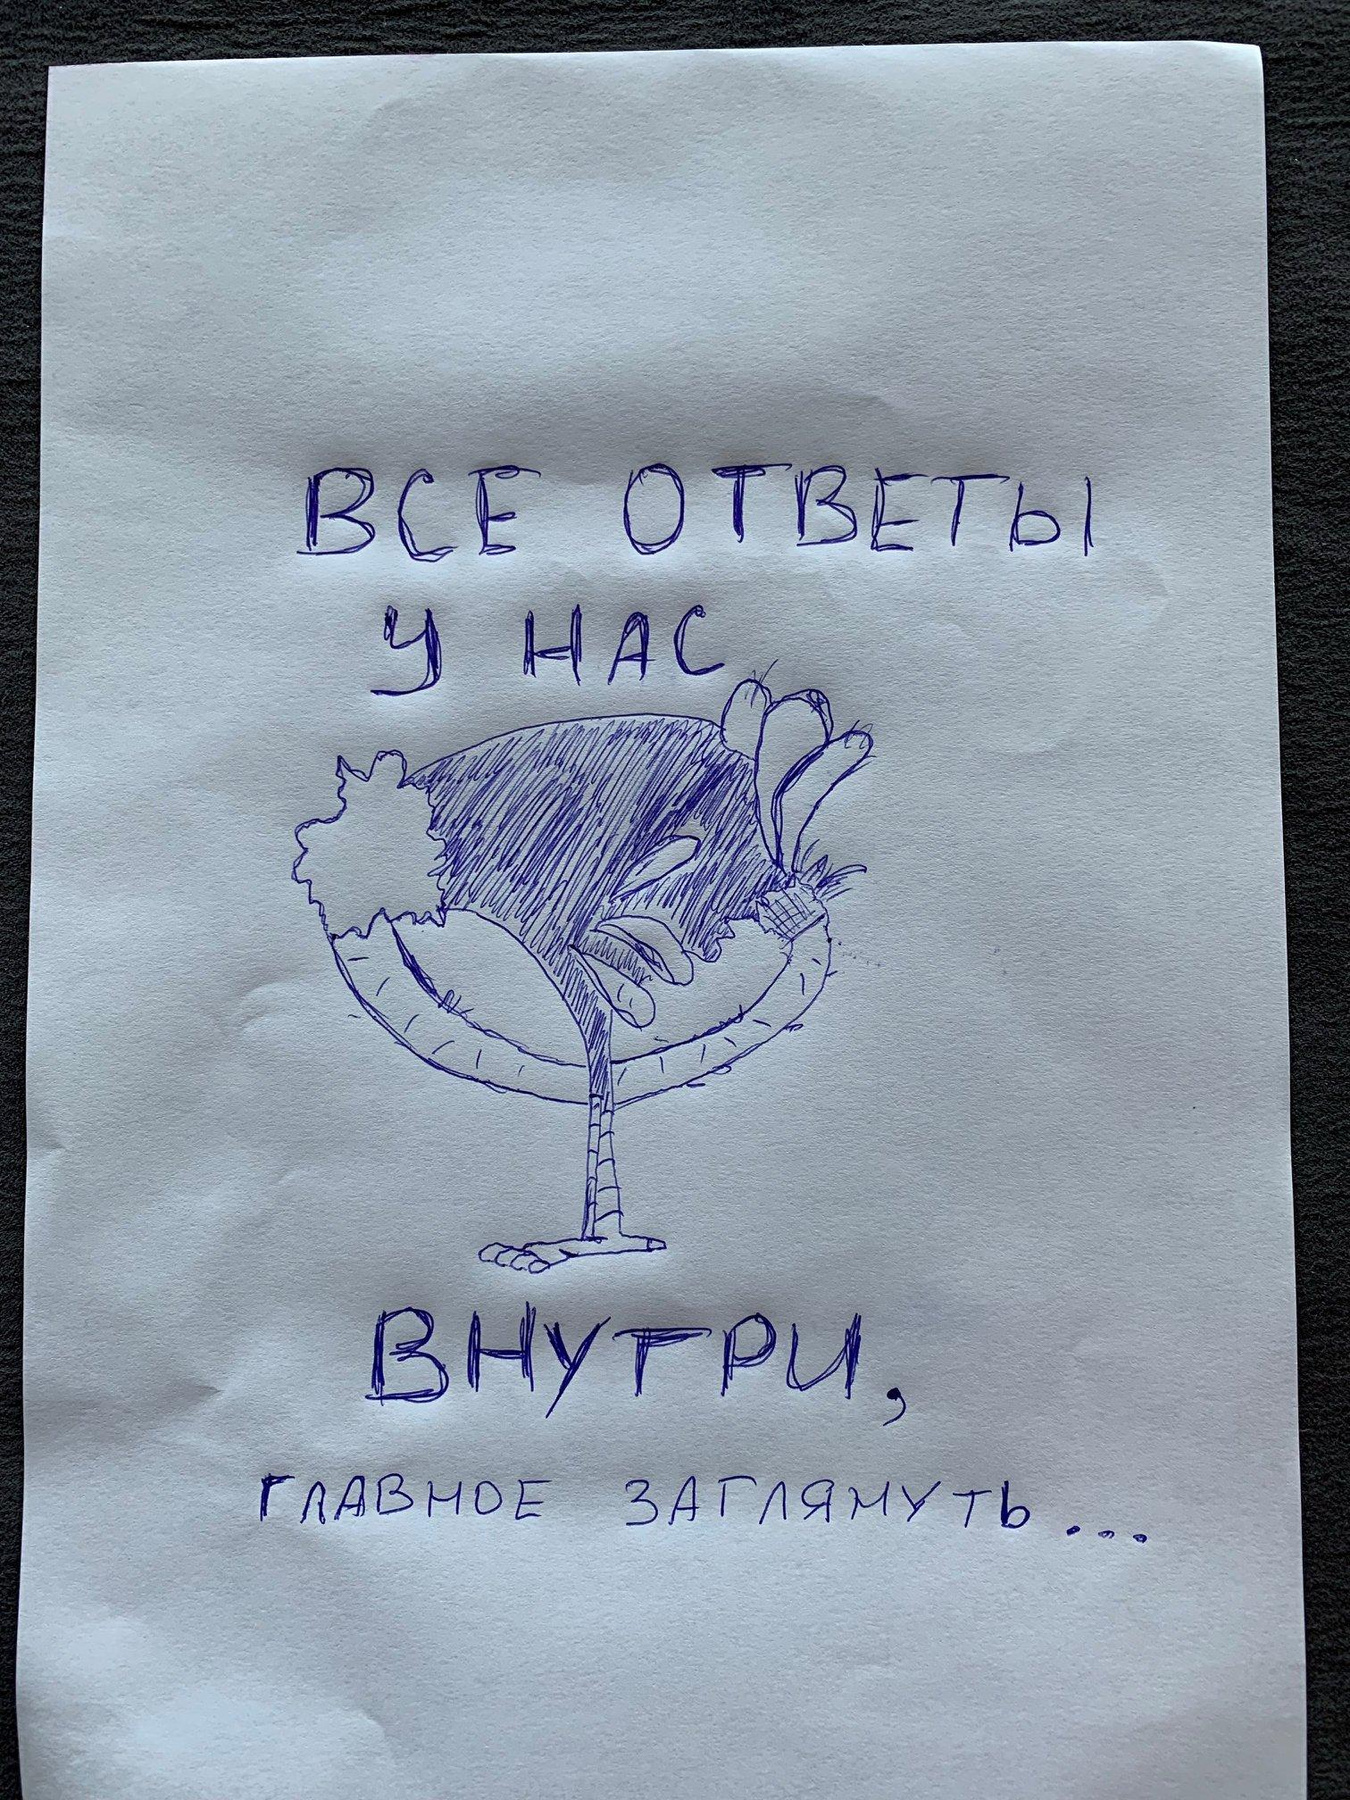 ВСЕ ОТВЕТЫ
У НАС
ВНУТРИ,
ГЛАВНОЕ ЗАГЛЯНУТЬ...